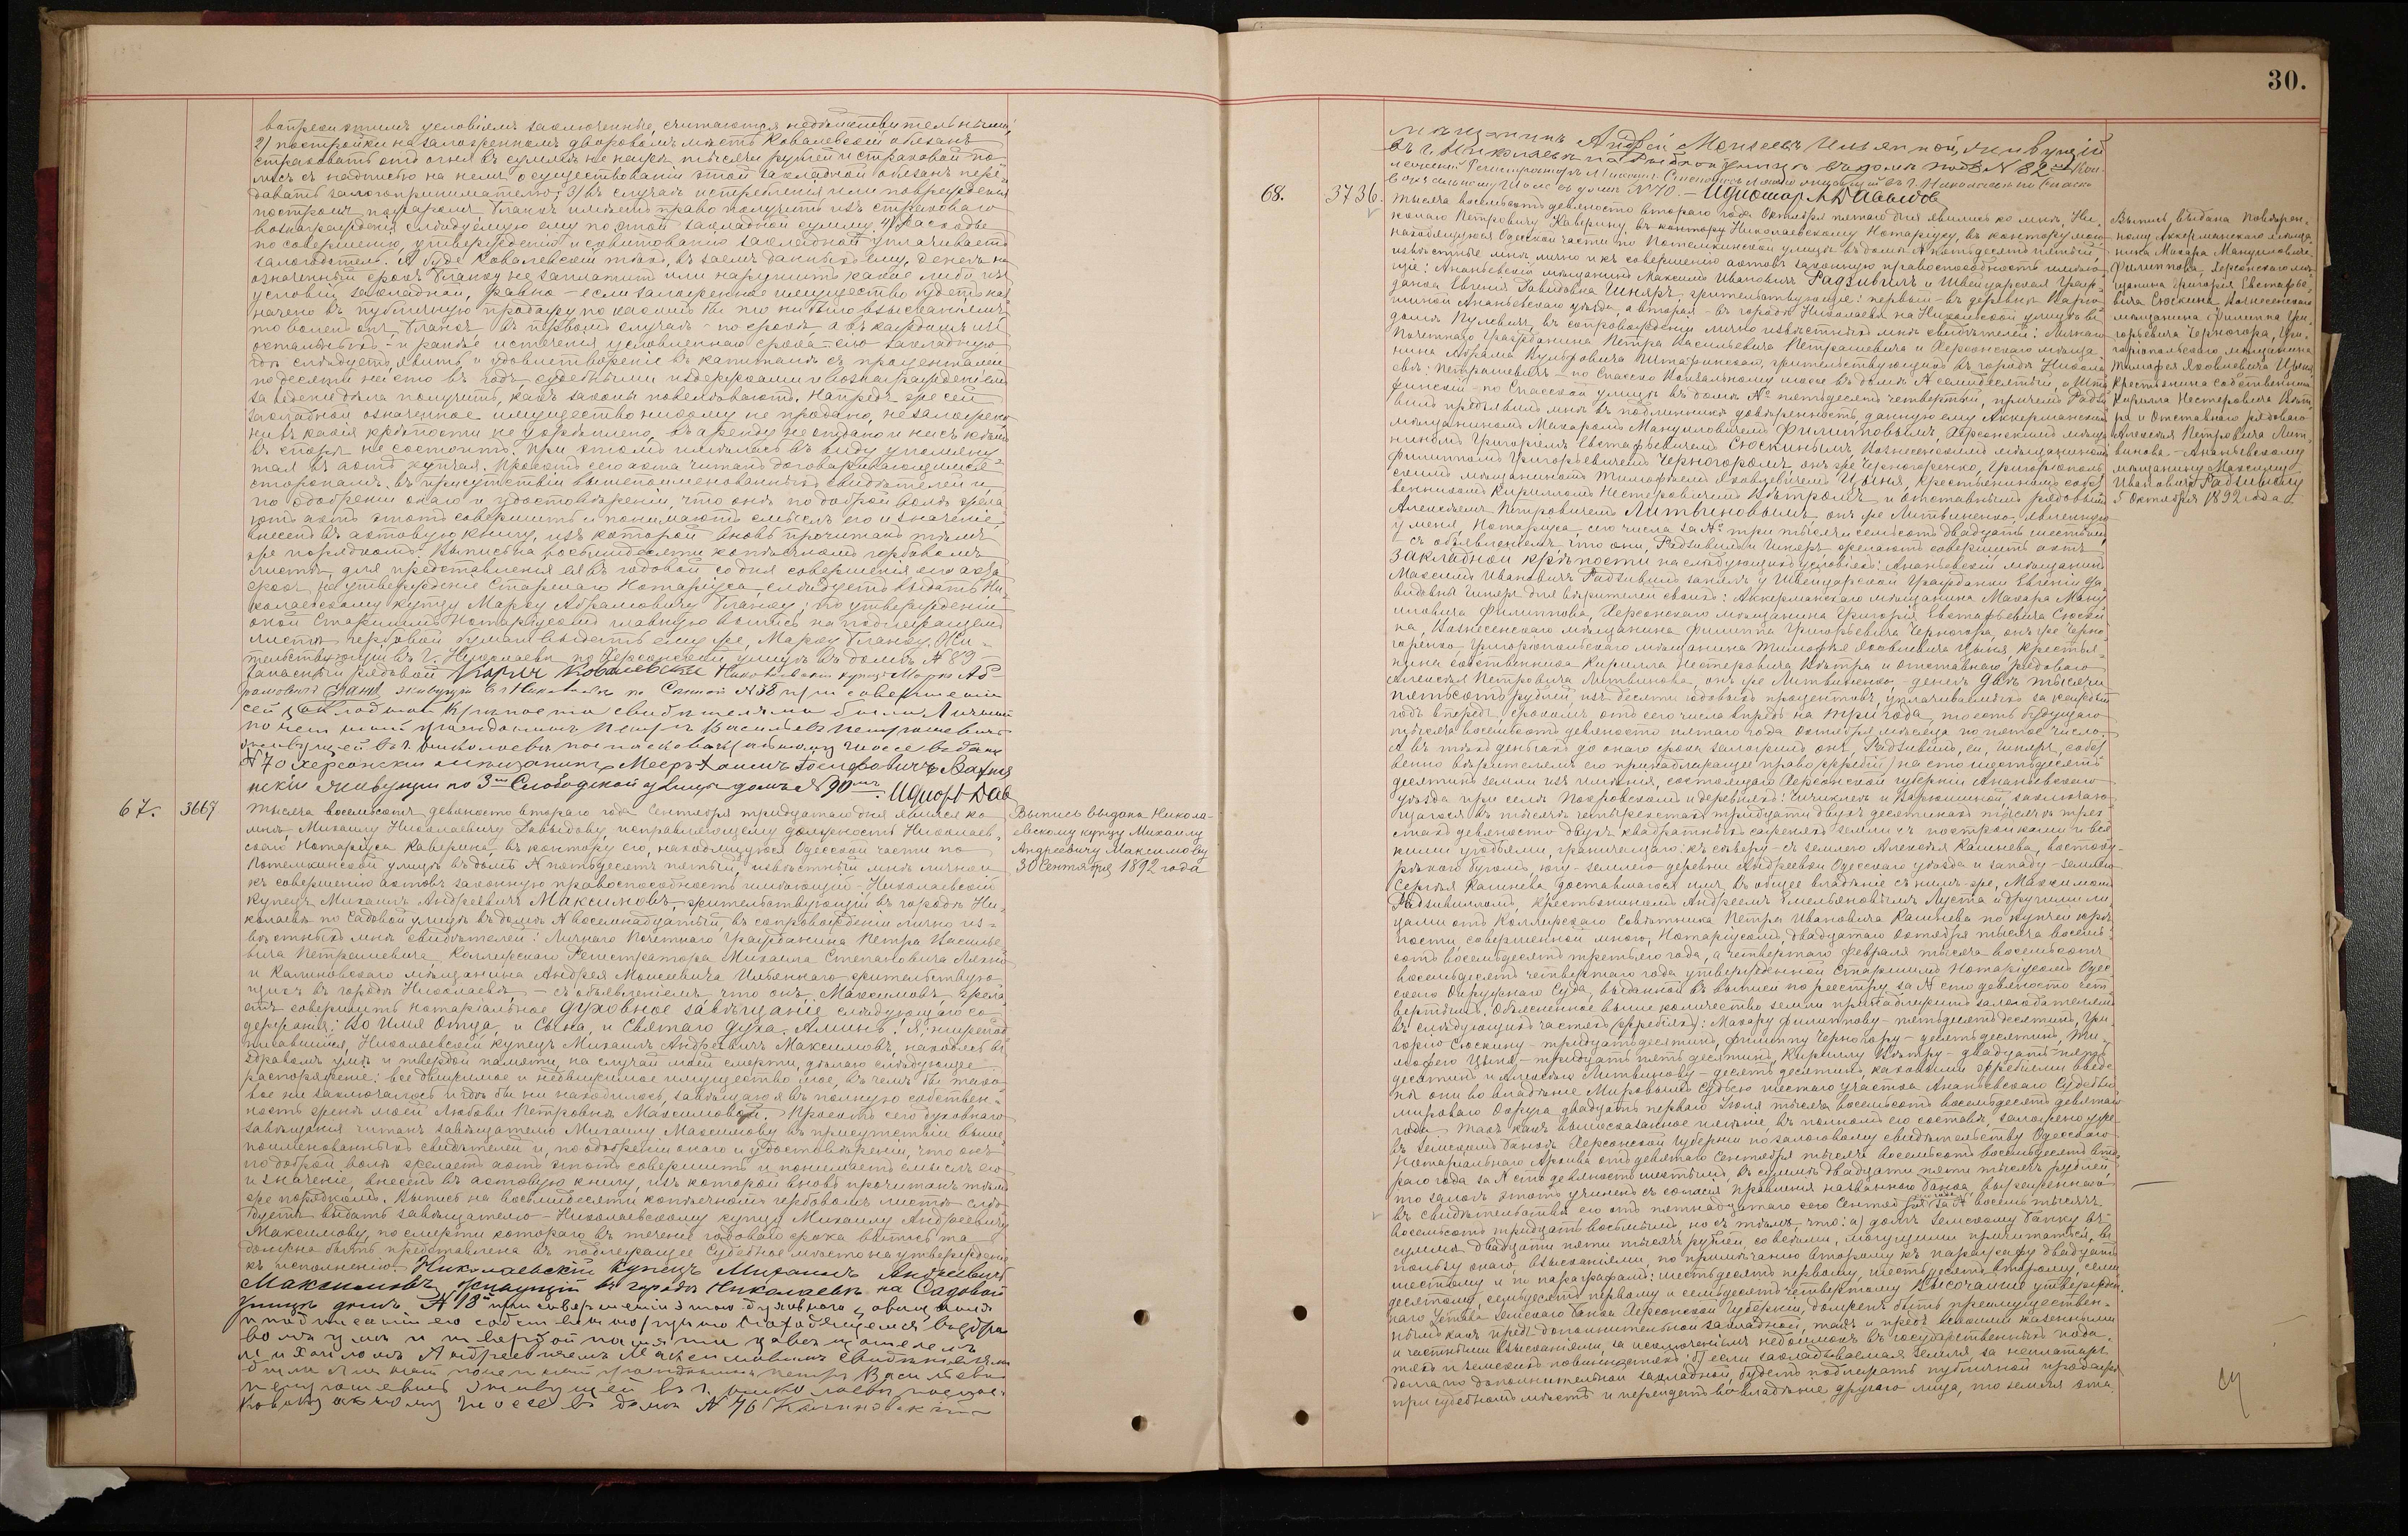 вопреки этимъ условіямъ заключенные, считаются недѣйствительными;
2) постройки на заложенномъ дворовомъ мѣстѣ Ковалевскій обязанъ
страховать отъ огня въ суммѣ не менѣе тысячи рублей и страховой по-
лисъ съ надписью на немъ о существованіи этой закладной обязанъ пере-
давать залогопринимателю; 3) въ случаѣ истребленія или поврежденія
построекъ пожаромъ, Бланкъ имѣетъ право получить изъ страховаго
вознагражденія слѣдуемую ему по этой закладной сумму; 4) расходы
по совершенію, утвержденію и сквитованію закладной уплачиваетъ
залогодатель. А буде Ковалевскій тѣхъ, въ заемъ данныхъ ему, денегъ на
означенный срокъ Бланку не заплатитъ или нарушитъ какое либо изъ
условій закладной, равно – если заложенное имущество будетъ наз-
начено въ публичную продажу по какимъ бы то ни было взысканіямъ,
то воленъ онъ, Бланкъ, въ первомъ случаѣ – по срокѣ, а въ каждомъ изъ
остальныхъ – и ранѣе истеченія условленнаго срока – сію закладную,
гдѣ слѣдуетъ, явить и удовлетвореніе въ капиталѣ съ процентами
по десяти на сто въ годъ, судебными издержками и вознагражденіемъ
за веденіе дѣла получить, какъ законы повелѣваютъ. Напредь же сей
закладной означенное имущество никому не продано, не заложено,
ни въ какія крѣпости не укрѣплено, въ аренду не отдано и ни съ кѣмъ
въ спорѣ не состоитъ. При этомъ имѣлась въ виду упомяну-
тая въ актѣ купчая. Проектъ сего акта читанъ договаривающимся
сторонамъ въ присутствіи вышепоименованныхъ свидѣтелей и,
по одобреніи онаго и удостовѣреніи, что онѣ по доброй волѣ жела-
ютъ актъ этотъ совершить и понимаютъ смыслъ его и значеніе,
внесенъ въ актовую книгу, изъ которой вновь прочитанъ тѣмъ
же порядкомъ. Выпись на восьмидесяти копѣечномъ гербовомъ
листѣ, для представленія ея въ годовой со дня совершенія сего акта
срокъ на утвержденіе Старшаго Нотаріуса, слѣдуетъ выдать Ни-
колаевскому купцу Марку Абрамовичу Бланку; по утвержденіи
оной Старшимъ Нотаріусомъ главную выпись на подлежащемъ
листѣ гербовой бумаги выдать ему же, Марку Бланку. Жи-
тельствующій въ г. Николаевѣ по Херсонской улицѣ въ домѣ № 89
Запасный рядовой Ковалевскій Николаевскій купецъ Марко Аб-
рамовичъ Бланкъ, живущій въ г Николаевѣ по № 38 при совершеніи
сей закладной крѣпости свидѣтелями были Личный
почетный гражданинъ Петръ Васильевъ Петрашевичъ
живущей въ г. Николаевѣ по Спасковокзальному шоссе въ домѣ
№ 70 херсонскій мѣщанинъ Мееръ-Хаимъ Іосифовичъ
живущій по 3й Слободской улицѣ домъ № 90мъ.
67. 3667 Тысяча восемьсотъ девяносто втораго года Сентября тридцатаго дня явился ко
мнѣ, Михаилу Николаевичу Давыдову, исправляющему должность Николаев-
скаго Нотаріуса Каверина, въ контору его, находящуюся Одесской части по
Потемкинской улицѣ въ домѣ № пятьдесятъ пятый, извѣстный мнѣ лично и
къ совершенію актовъ законную правоспособность имѣющій – Николаевскій
купецъ Михаилъ Андреевичъ Максимовъ, жительствующій въ городѣ Ни-
колаевѣ по Садовой улицѣ въ домѣ № восемнадцатый, въ сопровожденіи лично из-
вѣстныхъ мнѣ свидѣтелей: Личнаго Почетнаго Гражданина Петра Василье-
вича Петрашевича, Коллежскаго Регистратора Михаила Степановича
и Калиновскаго мѣщанина Андрея Моисеевича Ильяннаго, жительствую-
щихъ въ городѣ Николаевѣ, – съ объявленіемъ, что онъ, Максимовъ, жела-
етъ совершить нотаріальное духовное завѣщаніе слѣдующаго со-
держанія: Во Имя Отца, и Сына, и Святаго Духа. Аминь. Я, нижепод-
писавшійся, Николаевскій купецъ Михаилъ Андреевичъ Максимовъ, находясь въ
здравомъ умѣ и твердой памяти, на случай моей смерти, дѣлаю слѣдующее
распоряженіе: все движимое и недвижимое имущество мое, въ чемъ бы тако-
вое ни заключалось и гдѣ бы ни находилось, завѣщаю я въ полную собствен-
ность женѣ моей Любови Петровнѣ Максимовой. Проектъ сего духовнаго
завѣщанія читанъ завѣщателю Михаилу Максимову въ присутствіи выше-
поименованныхъ свидѣтелей и, по одобреніи онаго и удостовѣреніи, что онъ
по доброй волѣ желаетъ актъ этотъ совершить и понимаетъ смыслъ его
и значеніе, внесенъ въ актовую книгу, изъ которой вновь прочитанъ тѣмъ
же порядкомъ. Выпись на восьмидесяти копѣечномъ гербовомъ листѣ слѣ-
дуетъ выдать завѣщателю – Николаевскому купцу Михаилу Андреевичу
Максимову, по смерти котораго въ теченіе годоваго срока выпись та
должна быть представлена въ подлежащее Судебное мѣсто на утвержденіе
къ исполненію. Николаевскій Купецъ Михаилъ Андреевичъ
Максимовъ, живущій въ городѣ Николаевѣ на Садовой
улицѣ домъ № 18й при совершеніи этого духовнаго завѣщанія
и подписаніи его собственноручно находящемся въ здра-
вомъ умѣ и твердой памяти завещателемъ
Михаиломъ Андреевичемъ Максимовымъ свидѣтелями
были Личный почетный гражданинъ Петръ Васильевъ
Петрашевичъ живущей въ г. Николаевѣ по Спас-
ковокзальному шоссе въ домѣ № 70 Калиновскій
Выпись выдана Никола-
евскому купцу Михаилу
Андреевичу Максимову
30 Сентября 1892 года
30.
мѣщанинъ Андрей Моисеевъ Ильянной, живущій
въ г. Николаевѣ на Рыбной улицѣ въ домѣ подъ № 82мъ Кол-
лежскій Регистраторъ Михаилъ Степановъ живущій въ г. Николаевѣ по Спаско
Вокзальному Шоссе въ домѣ № 70. –
68. 3736. Тысяча восемьсотъ девяносто втораго года Октября пятаго дня явились ко мнѣ, Ни-
колаю Петровичу Каверину, въ контору Николаевскому Нотаріусу, въ контору мою
находящуюся Одесской части по Потемкинской улицѣ въ домѣ № пятьдесятъ пятый,
извѣстные мнѣ лично и къ совершенію актовъ законную правоспособность имѣю-
щіе: Ананьевскій мѣщанинъ Максимъ Ивановичъ Радзивилъ и Швейцарская Граж-
данка Евгенія Давидовна Шняръ, жительствующіе: первый – въ деревнѣ Варю-
шиной Ананьевскаго уѣзда, а вторая – въ городѣ Николаевѣ на Никольской улицѣ въ
домѣ Пулевича, въ сопровожденіи лично извѣстныхъ мнѣ свидѣтелей: Личнаго
Почетнаго Гражданина Петра Васильевича Петрашевича и Херсонскаго мѣща-
нина Абрама Вульфовича Штафинскаго, жительствующихъ въ городѣ Никола-
евѣ: Петрашевичъ – по Спасско Вокзальному шоссе въ домѣ № семидесятый, а Шта-
финскій – по Спасской улицѣ въ домѣ № пятьдесятъ четвертый, причемъ Радзи-
вилъ предъявилъ мнѣ въ подлинникѣ довѣренность, данную ему Аккерманскимъ
мѣщаниномъ Макаромъ Мануиловичемъ Филипповымъ, Херсонскимъ мѣща-
ниномъ Григоріемъ Евстафьевичемъ Сюскинымъ, Вознесенскимъ мѣщаниномъ
Филиппомъ Григорьевичемъ Черногоромъ, онъ же Черногоренко, Григоріополь-
скимъ мѣщаниномъ Тимофеемъ Яковлевичемъ Цыня, крестьяниномъ собст-
венникомъ Кирилломъ Нестеровичемъ Вѣтромъ и отставнымъ рядовымъ
Алексѣемъ Петровичемъ Литвиновымъ, онъ же Литвиненко, явленную
у меня, Нотаріуса, сего числа за № три тысячи семьсотъ двадцать шестымъ,
съ объявленіемъ, что они, Радзивилъ и Шняръ, желаютъ совершить актъ
закладной крѣпости на слѣдующихъ условіяхъ: Ананьевскій мѣщанинъ
Максимъ Ивановичъ Радзивилъ занялъ у Швейцарской Гражданки Евгеніи Да-
видовны Шняръ для вѣрителей своихъ: Аккерманскаго мѣщанина Макара Ману-
иловича Филиппова, Херсонскаго мѣщанина Григорія Евстафьевича Сюски-
на, Вознесенскаго мѣщанина Филиппа Григорьевича Черногора, онъ же Черно-
горенко, Григоріопольскаго мѣщанина Тимофея Яковлевича Цыня, крестья-
нина собственника Кирилла Нестеровича Вѣтра и отставнаго рядоваго
Алексѣя Петровича Литвинова, онъ же Литвиненко, – денегъ двѣ тысячи
пятьсотъ рублей, изъ десяти годовыхъ процентовъ, уплачиваемыхъ за каждый
годъ впередъ, срокомъ отъ сего числа впредь на три года, то есть будущаго
тысяча восемьсотъ девяносто пятаго года Октября мѣсяца по пятое число.
А въ тѣхъ деньгахъ до онаго срока заложилъ онъ, Радзивилъ, ей, Шняръ, собст-
венно вѣрителямъ его принадлежащее право (жребій) на сто шестьдесятъ
десятинъ земли изъ имѣнія, состоящаго Херсонской губерніи Ананьевскаго
уѣзда при селѣ Покровскомъ и деревняхъ: Чичиклеѣ и Варюшиной, заключаю-
щагося въ тысячѣ четырехстахъ тридцати двухъ десятинахъ тысячѣ трех-
стахъ девяносто двухъ квадратныхъ саженяхъ земли съ постройками и вся-
кими угодьями, граничащаго: къ сѣверу – съ землею Алексѣя Кашнева, востоку –
рѣкою Бугомъ, югу – землею деревни Андреевки Одесскаго уѣзда и западу – землею
Сергѣя Кашнева, доставшагося имъ, въ общее владѣніе съ нимъ-же, Максимомъ
Радзивилломъ, крестьяниномъ Андреемъ Емельяновичемъ Луста и другими ли-
цами отъ Коллежскаго Совѣтника Петра Ивановича Кашнева по купчей крѣ-
пости, совершенной мною, Нотаріусомъ, двадцатаго Октября тысяча восемь-
сотъ восемьдесятъ третьяго года, а четвертаго Февраля тысяча восемьсотъ
восемьдесятъ четвертаго года утвержденной Старшимъ Нотаріусомъ Одес-
скаго Окружнаго Суда, выданной въ выписи по реестру за № сто девяносто чет-
вертымъ. Объясненное выше количество земли принадлежитъ залогодателямъ
въ слѣдующихъ частяхъ (жребіяхъ): Макару Филиппову – пятьдесятъ десятинъ, Гри-
горію Сюскину – тридцать десятинъ, Филиппу Черногору – десять десятинъ, Ти-
мофею Цыня – тридцать пять десятинъ, Кириллу Вѣтру – двадцать пять
десятинъ и Алексѣю Литвинову – десять десятинъ, каковыми жребіями введе-
ны они во владѣніе Мировымъ Судьею шестаго участка Ананьевскаго Судебно-
мироваго Округа двадцать перваго Іюля тысяча восемьсотъ восемьдесятъ девятаго
года. Такъ какъ вышесказанное имѣніе, въ полномъ его составѣ, заложено уже
въ Земскомъ Банкѣ Херсонской Губерніи по залоговому свидѣтельству Одесскаго
Нотаріальнаго Архива отъ девятаго Сентября тысяча восемьсотъ восемьдесятъ вто-
раго года за № сто девяносто шестымъ, въ суммѣ двадцати пяти тысячъ рублей,
то залогъ этотъ учиненъ съ согласія Правленія названнаго банка, выраженнаго
въ свидѣтельствѣ его отъ пятнадцатаго сего Сентября за № восемь тысячъ
восемьсотъ тридцать восьмымъ, но съ тѣмъ, что: а) долгъ Земскому Банку въ
суммѣ двадцати пяти тысячъ рублей, со всѣми, могущими причитаться, въ
пользу онаго, взысканіями, по примѣчанію второму къ параграфу двадцать
шестому и по параграфамъ: шестьдесятъ первому, шестьдесятъ второму, семи-
десятому, семьдесятъ первому и семьдесятъ четвертому Высочайше утвержден-
наго Устава Земскаго Банка Херсонской Губерніи, долженъ быть преимуществен-
нымъ какъ предъ дополнительной закладной, такъ и предъ всякими казенными
и частными взысканіями, за исключеніемъ недоимокъ въ государственныхъ пода-
тяхъ и земскихъ повинностяхъ; б) если закладываемая земля за неплатежъ
долга по дополнительной закладной, будетъ подлежать публичной продажѣ
при судебномъ мѣстѣ и перейдетъ во владѣніе другаго лица, то земля эта
Выпись выдана повѣрен-
ному Аккерманскаго мѣща-
нина Макара Мануиловича
Филиппова, Херсонскаго мѣ-
щанина Григорія Евстафье-
вича Сюскина, Вознесенскаго
мѣщанина Филиппа Гри-
горьевича Черногора, Гри-
горіопольскаго мѣщанина
Тимофея Яковлевича Цыня,
Крестьянина собственника
Кирилла Нестеровича Вѣт-
ра и Отставнаго рядоваго
Алексѣя Петровича Лит-
винова – Ананьевскому
мѣщанину Максиму
Ивановичу Радзивилу
5 Октября 1892 года